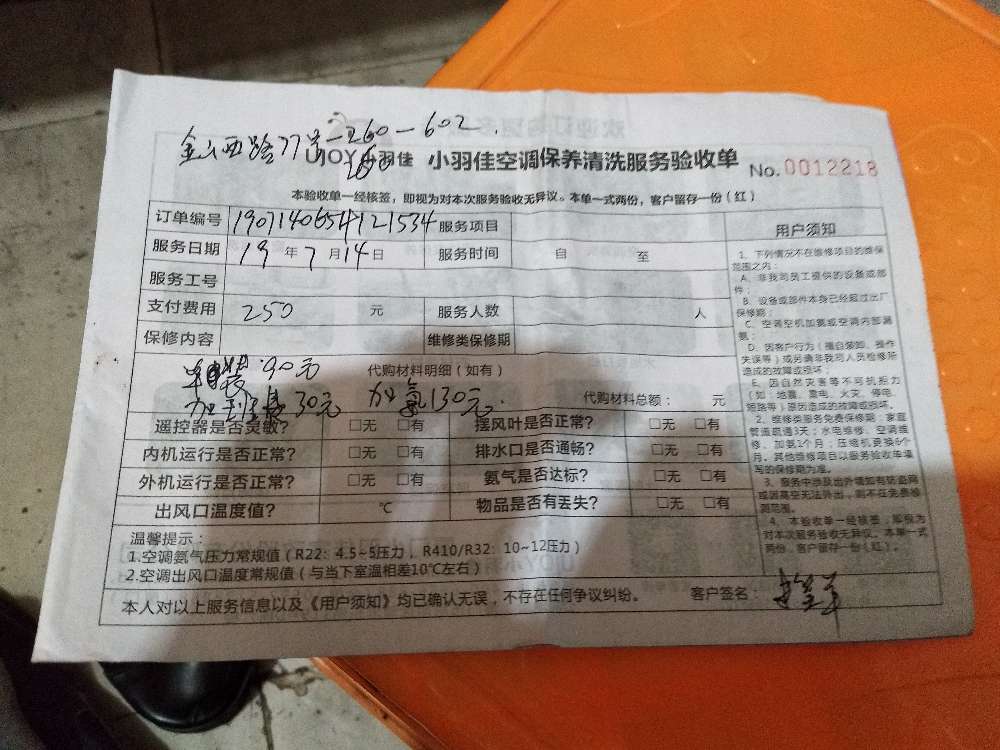 金山西路77号-260-602.
UJOY小羽佳 小羽佳空调保养清洗服务验收单 No.0012218
本验收单一经核签，即视为对本次服务验收无异议。本单一式两份，客户留存一份（红）
订单编号 1907140654121534 服务项目
服务日期 19 年 7 月 14 日 服务时间 自 至
服务工号
支付费用 250 元 服务人数 人
保修内容 维修类保修期
90元 代购材料明细（如有）
30元 加氟130元. 代购材料总额： 元
遥控器是否灵敏？ □无 □有 摆风叶是否正常？ □无 □有
内机运行是否正常？ □无 □有 排水口是否通畅？ □无 □有
外机运行是否正常？ □无 □有 氨气是否达标？ □无 □有
出风口温度值？ ℃ 物品是否有丢失？ □无 □有
温馨提示：
1.空调氨气压力常规值（R22：4.5~5压力， R410/R32：10~12压力）
2.空调出风口温度常规值（与当下室温相差10℃左右）
本人对以上服务信息以及《用户须知》均已确认无误，不存在任何争议纠纷。 客户签名：
用户须知
1、下列情况不在维修项目的维保
范围之内：
A、非我司员工提供的设备或部
件；
B、设备或部件本身已经超过出厂
保修期；
C、空调空机加氨或空调内部漏
氨；
D、因客户行为（擅自装卸、操作
失误等）或另请非我司人员检修所
造成的故障或损坏；
E、因自然灾害等不可抗拒力
（如：地震、雷电、火灾、停电、
短路等）原因造成的故障或损坏。
2、维修类服务免费保修期：家庭
管道疏通3天；水电维修、空调维
修、加氨1个月；压缩机更换6个
月。其他维修项目以服务验收单填
写的保修期为准。
3、服务中涉及出外墙如有防盗网
或因高空无法外出，则不在免费检
测范围。
4、本验收单一经核签，即视为
对本次服务验收无异议。本单一式
两份，客户留存一份（红）。